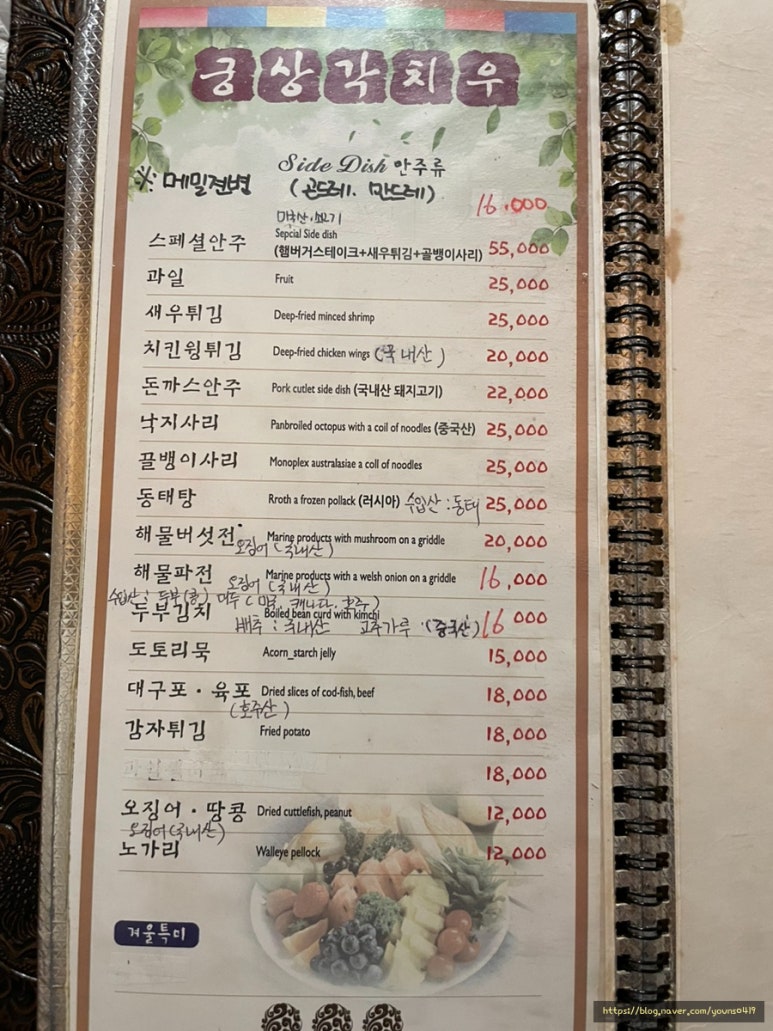 궁상각치우
Side Dish 안주류
※ 메밀전병 (곤드레. 만드레) 16.000
미국산.쇠고기
스페셜안주 Sepcial Side dish
(햄버거스테이크+새우튀김+골뱅이사리) 55,000
과일 Fruit 25,000
새우튀김 Deep-fried minced shrimp 25,000
치킨윙튀김 Deep-fried chicken wings (국내산) 20,000
돈까스안주 Pork cutlet side dish (국내산 돼지고기) 22,000
낙지사리 Panbroiled octopus with a coil of noodles (중국산) 25,000
골뱅이사리 Monoplex australasiae a coll of noodles 25,000
동태탕 Rroth a frozen pollack (러시아) 수입산 : 동태 25,000
해물버섯전 Marine products with mushroom on a griddle 20,000
오징어 (국내산)
해물파전 Marine products with a welsh onion on a griddle 16,000
오징어 (국내산)
수입산 : 두부(콩) (미국, 캐나다, 호주)
두부김치 Boiled bean curd with kimchi 16 000
배추 : 국내산 고추가루 (중국산)
도토리묵 Acorn_starch jelly 15,000
대구포 · 육포 Dried slices of cod-fish, beef 18,000
(호주산)
감자튀김 Fried potato 18,000
18,000
오징어 · 땅콩 Dried cuttlefish, peanut 12,000
오징어(국내산)
노가리 Walleye pellock 12,000
겨울특미
https://blog.naver.com/youns0419